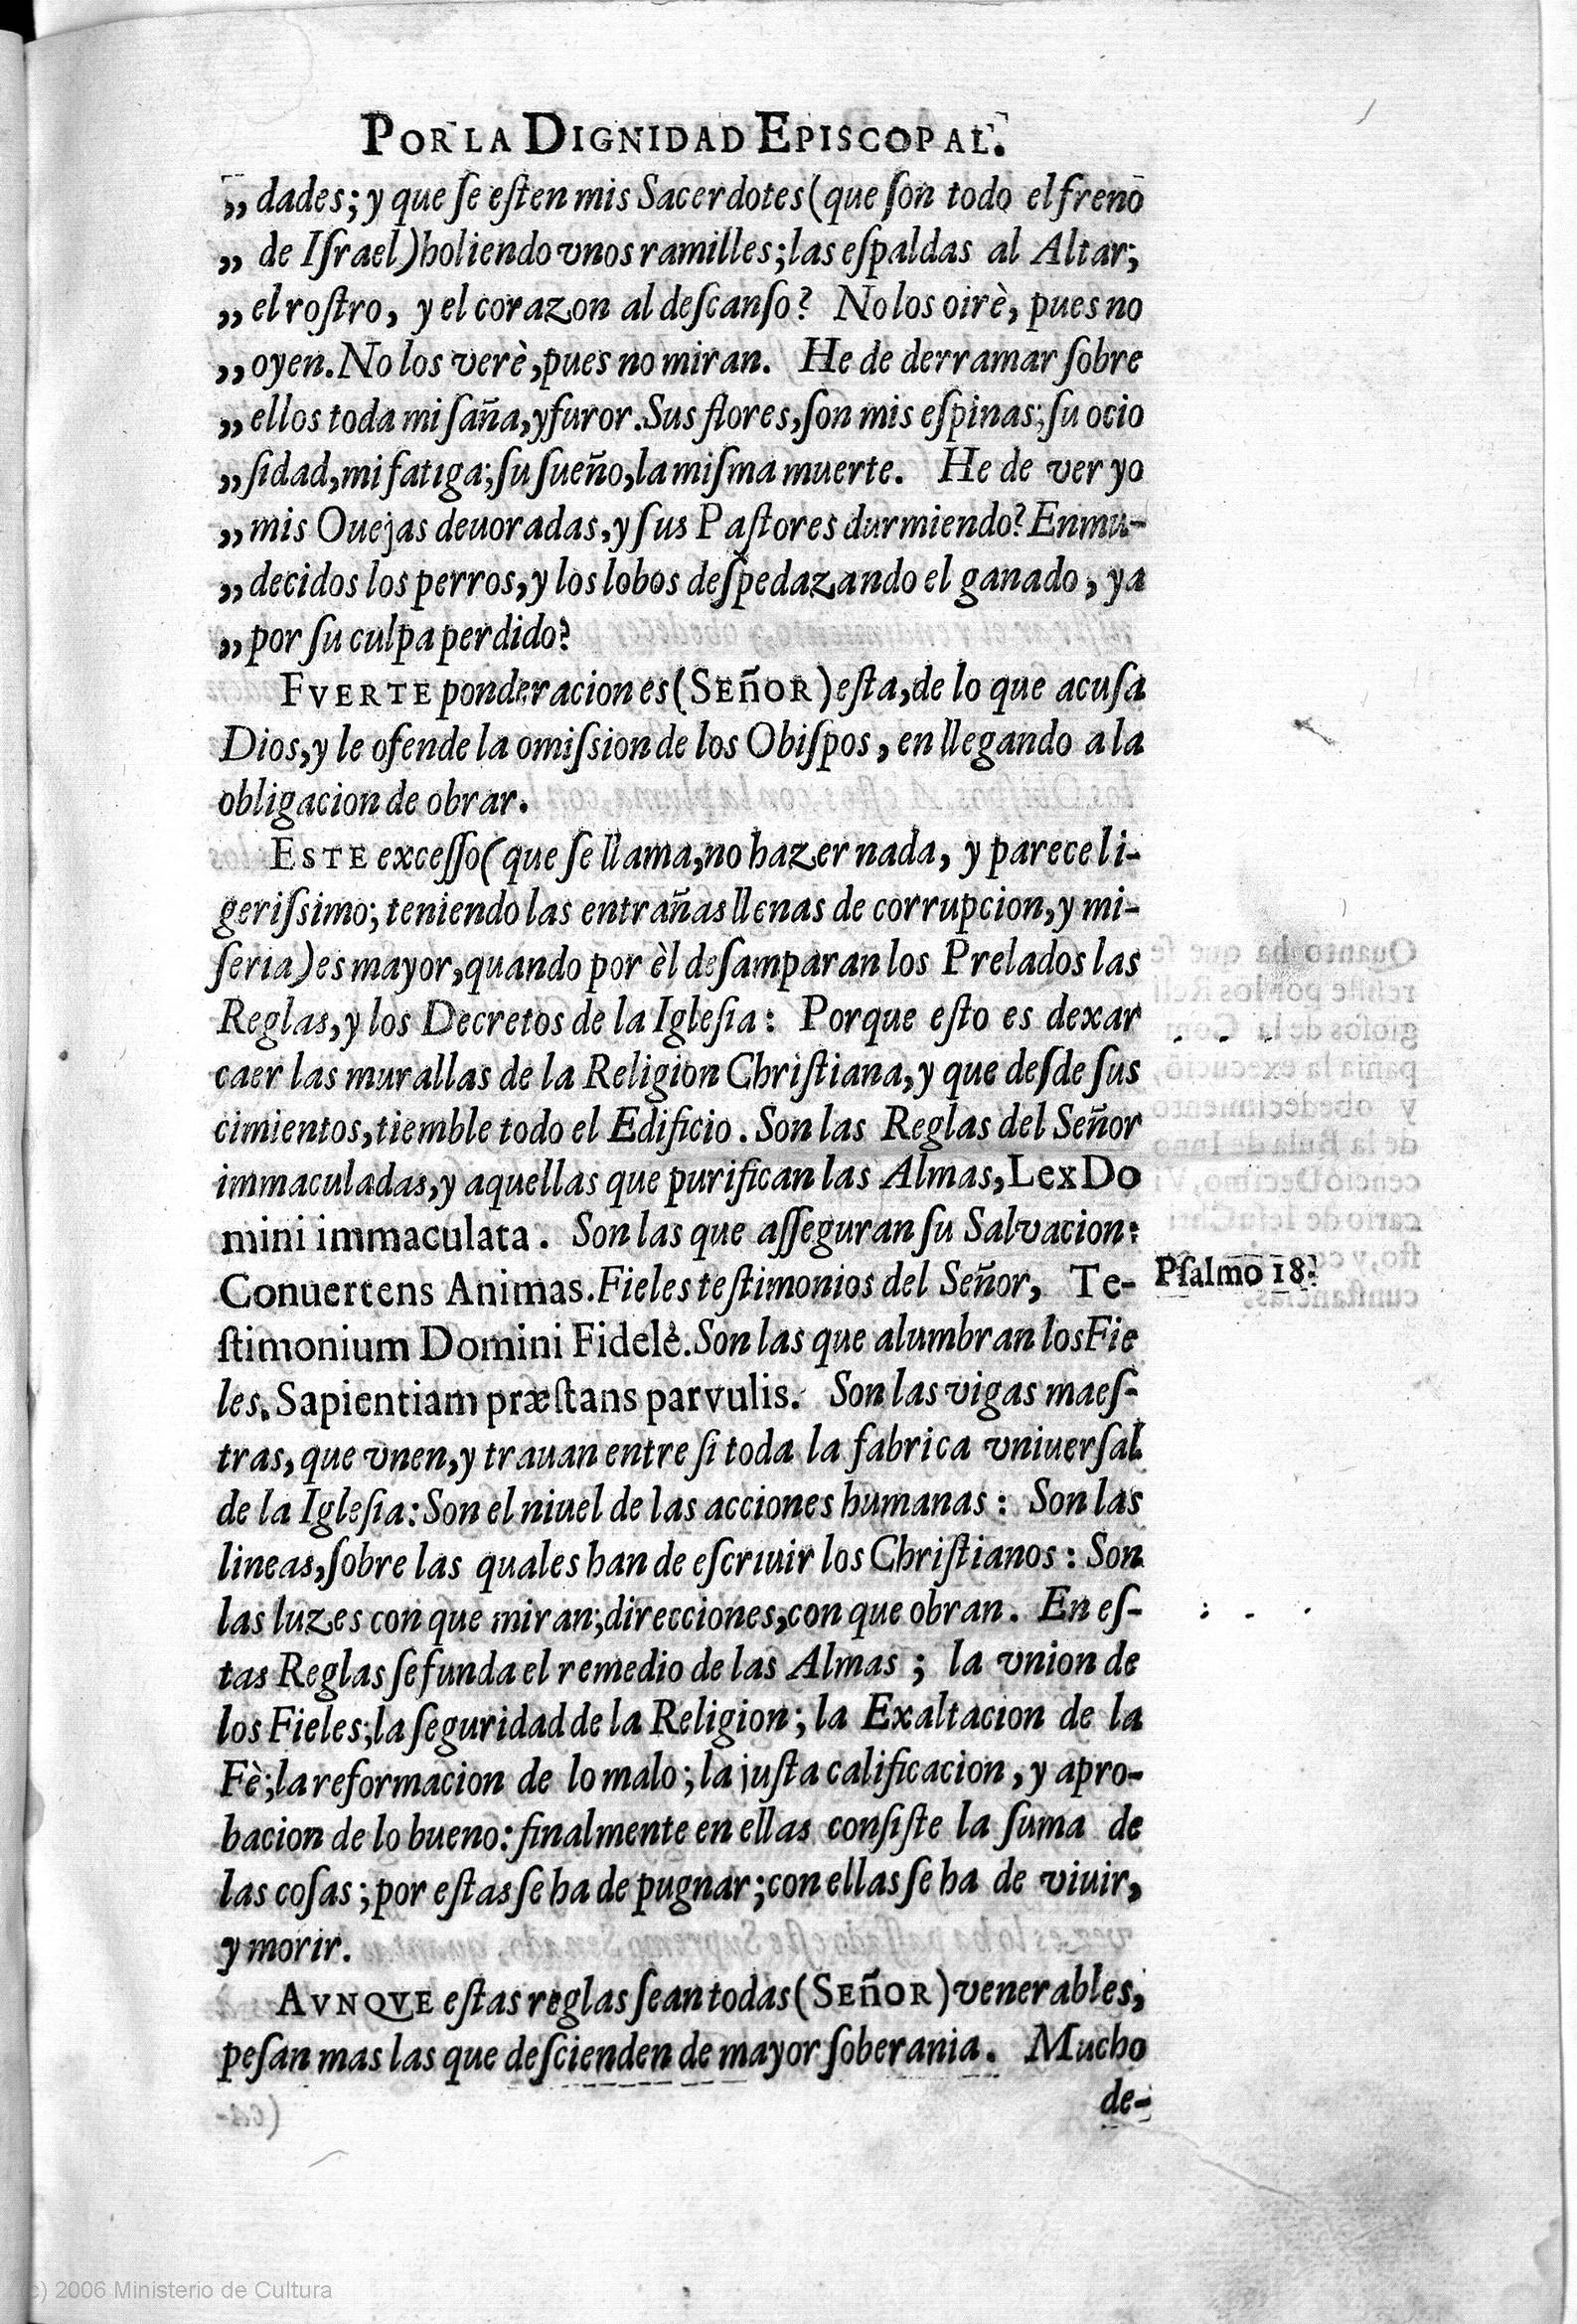 POR LA DIGNIDAD EPISCOPAL.
„ dades; y que ſe eſten mis Sacerdotes (que ſon todo el freno
„ de Iſrael) holiendo vnos ramilles; las eſpaldas al Altar;
„ el roſtro, y el corazon al deſcanſo? No los oirè, pues no
„ oyen. No los verè, pues no miran. He de derramar ſobre
„ ellos toda mi ſaña, y furor. Sus flores, ſon mis eſpinas; ſu ocio
„ ſidad, mi fatiga; ſu ſueño, la miſma muerte. He de ver yo
„ mis Ouejas deuoradas, y ſus Paſtores durmiendo? Enmu-
„ decidos los perros, y los lobos deſpedazando el ganado, ya
„ por ſu culpa perdido?
FVERTE ponderacion es (SEñOR) eſta, de lo que acuſa
Dios, y le ofende la omiſsion de los Obiſpos, en llegando a la
obligacion de obrar.
ESTE exceſſo (que ſe llama, no hazer nada, y parece li-
geriſsimo; teniendo las entrañas llenas de corrupcion, y mi-
ſeria) es mayor, quando por èl deſamparan los Prelados las
Reglas, y los Decretos de la Igleſia: Porque eſto es dexar
caer las murallas de la Religion Chriſtiana, y que deſde ſus
cimientos, tiemble todo el Edificio. Son las Reglas del Señor
immaculadas, y aquellas que purifican las Almas, Lex Do
mini immaculata. Son las que aſſeguran ſu Salvacion:
Conuertens Animas. Fieles teſtimonios del Señor, Te-
ſtimonium Domini Fidelè. Son las que alumbran los Fie
les. Sapientiam præſtans parvulis. Son las vigas maeſ-
tras, que vnen, y trauan entre ſi toda la fabrica vniuerſal
de la Igleſia: Son el niuel de las acciones humanas: Son las
lineas, ſobre las quales han de eſcriuir los Chriſtianos: Son
las luzes con que miran; direcciones, con que obran. En eſ-
tas Reglas ſe funda el remedio de las Almas; la vnion de
los Fieles; la ſeguridad de la Religion; la Exaltacion de la
Fè; la reformacion de lo malo; la juſta calificacion, y apro-
bacion de lo bueno: finalmente en ellas conſiſte la ſuma de
las coſas; por eſtas ſe ha de pugnar; con ellas ſe ha de viuir,
y morir.
AVNQVE eſtas reglas ſean todas (SEñOR) venerables,
peſan mas las que deſcienden de mayor ſoberania. Mucho
de-
Pſalmo 18.
(c) 2006 Ministerio de Cultura